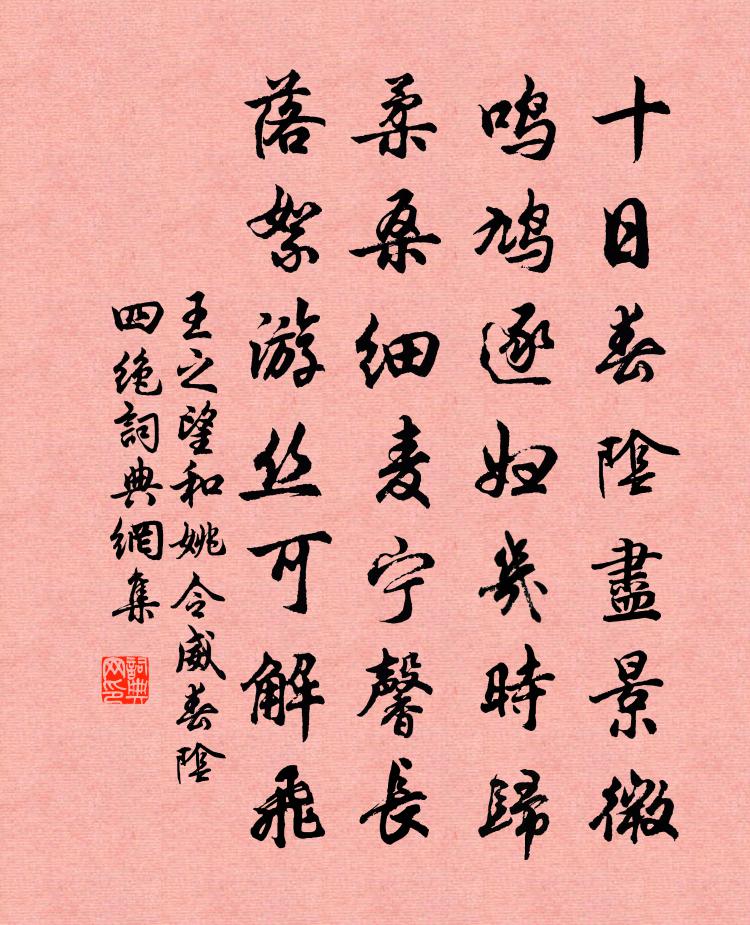 十日春陰盡景微
鸣鸠逐妇幾時歸
柔桑细麦宁馨长
落絮游丝可解飛
王之望和姚令威春陰
四绝詞典網集
詞典网印